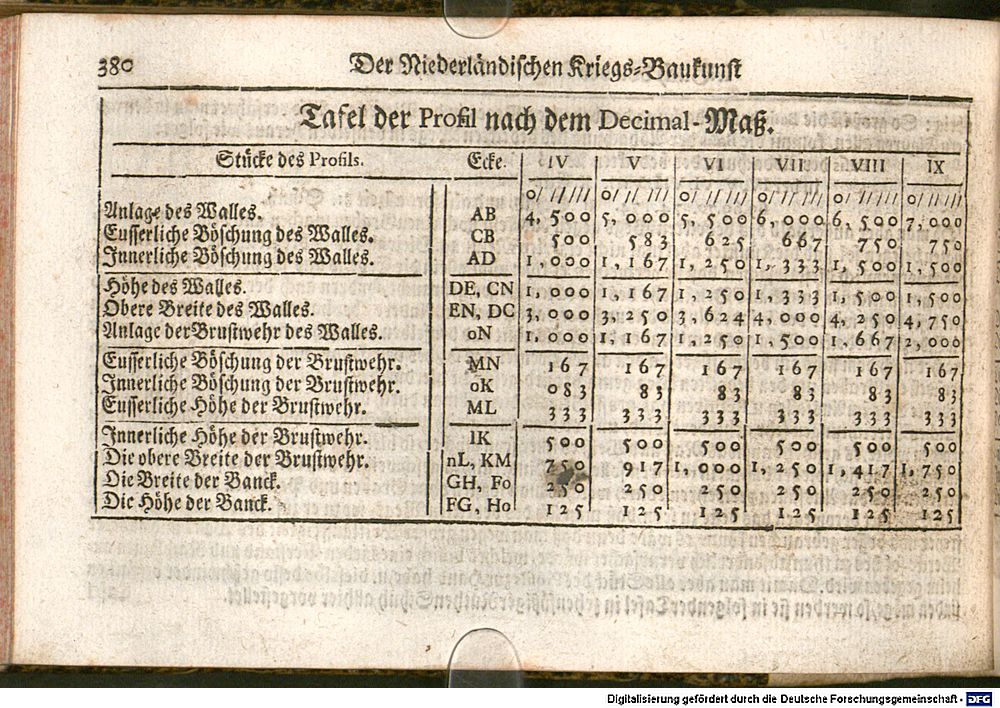 380 Der Niederländischen Kriegs-Baukunst
Tafel der Profil nach dem Decimal-Maß.
Stücke des Profils. Ecke. IV V VI VII VIII IX
0/ // /// 0/ // /// 0/ // /// 0/ // /// 0/ // /// 0/ // ///
Anlage des Walles. AB 4, 500 5, 000 5, 500 6, 000 6, 500 7, 000
Eusserliche Böschung des Walles. CB 500 583 625 667 750 750
Innerliche Böschung des Walles. AD 1, 000 1, 167 1, 250 1, 333 1, 500 1, 500
Höhe des Walles. DE, CN 1, 000 1, 167 1, 250 1, 333 1, 500 1, 500
Obere Breite des Walles. EN, DC 3, 000 3, 250 3, 624 4, 000 4, 250 4, 750
Anlage der Brustwehr des Walles. oN 1, 000 1, 167 1, 250 1, 500 1, 667 2, 000
Eusserliche Böschung der Brustwehr. MN 167 167 167 167 167 167
Innerliche Böschung der Brustwehr. oK 083 83 83 83 83 83
Eusserliche Höhe der Brustwehr. ML 333 333 333 333 333 333
Innerliche Höhe der Brustwehr. IK 500 500 500 500 500 500
Die obere Breite der Brustwehr. nL, KM 750 917 1, 000 1, 250 1, 417 1, 750
Die Breite der Banck. GH, Fo 250 250 250 250 250 250
Die Höhe der Banck. FG, Ho 125 125 125 125 125 125
Digitalisierung gefördert durch die Deutsche Forschungsgemeinschaft - DFG